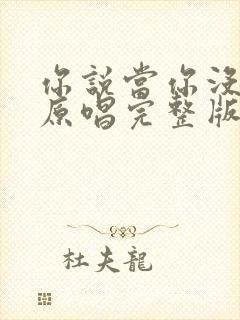 你說當你沒
原唱完整版
杜夫龍